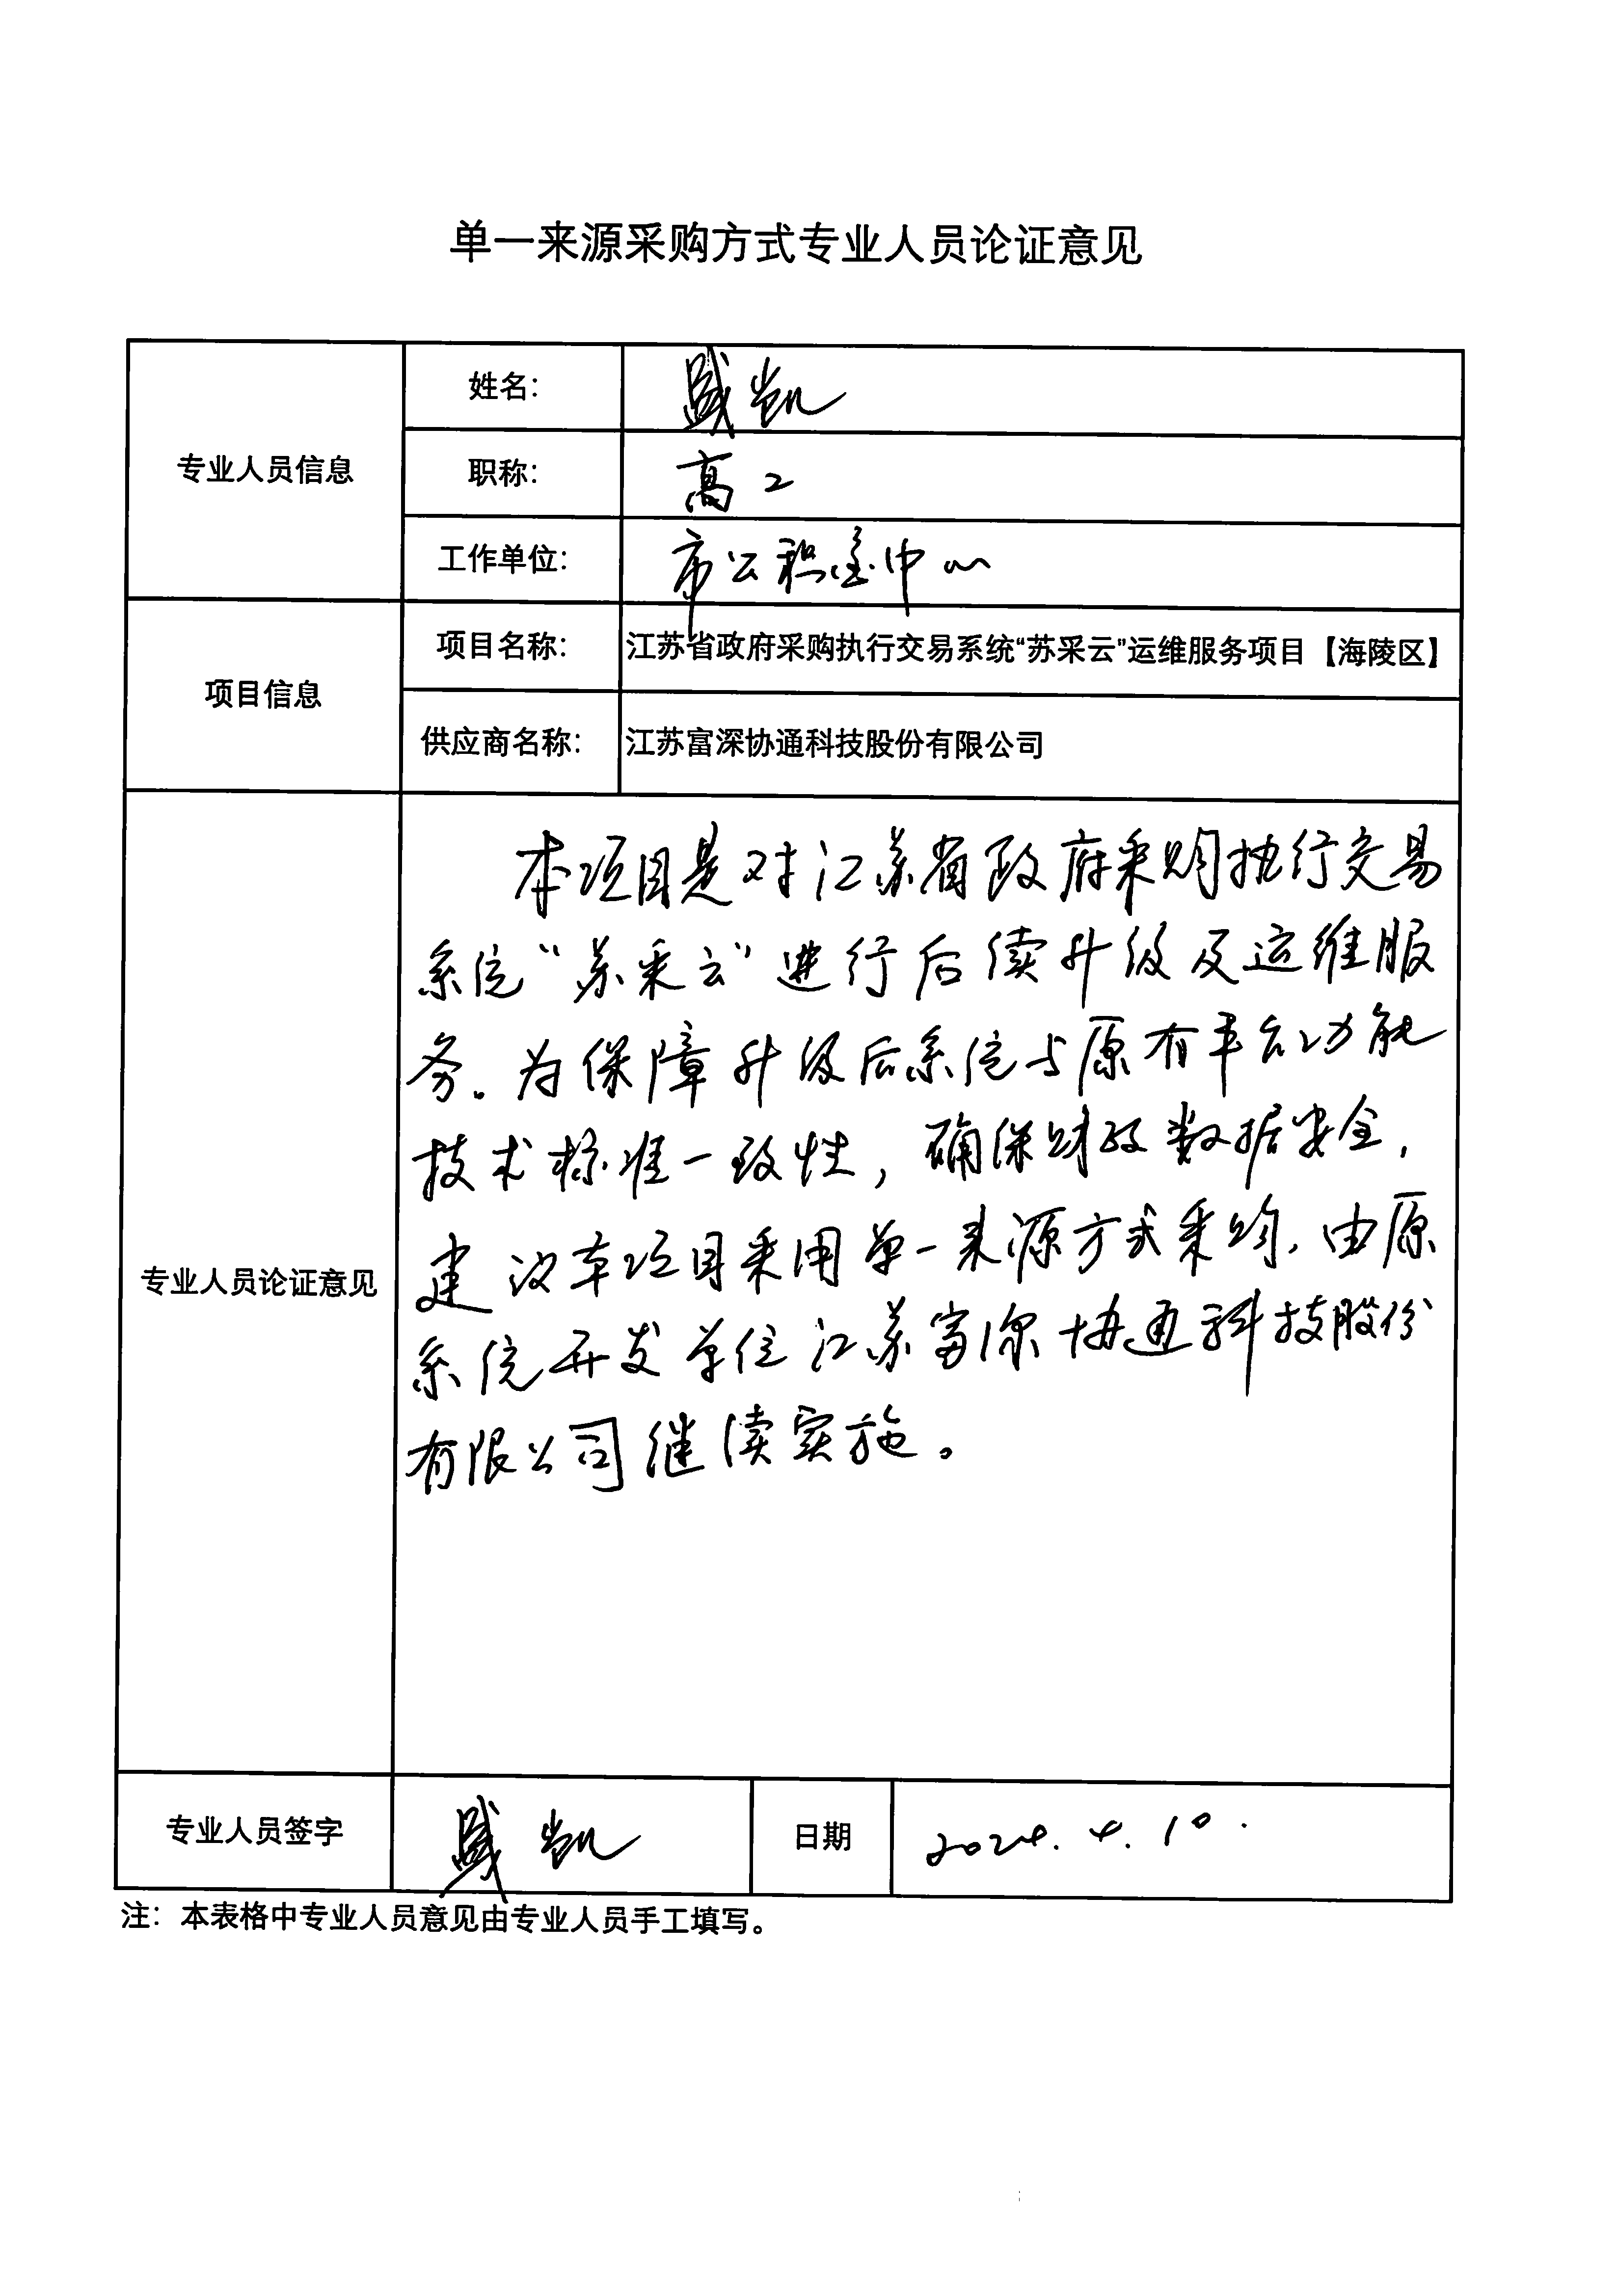 单一来源采购方式专业人员论证意见
专业人员信息
姓名：
盛凯
职称：
高工
工作单位：
市公积金中心
项目信息
项目名称：
江苏省政府采购执行交易系统“苏采云”运维服务项目【海陵区】
供应商名称：
江苏富深协通科技股份有限公司
专业人员论证意见
本项目是对江苏省政府采购执行交易
系统“苏采云”进行后续升级及运维服
务。为保障升级后系统与原有平台功能
技术标准一致性，确保财政数据安全，
建议本项目采用单一来源方式采购，由原
系统开发单位江苏富深协通科技股份
有限公司继续实施。
专业人员签字
盛凯
日期
2024.4.10.
注：本表格中专业人员意见由专业人员手工填写。